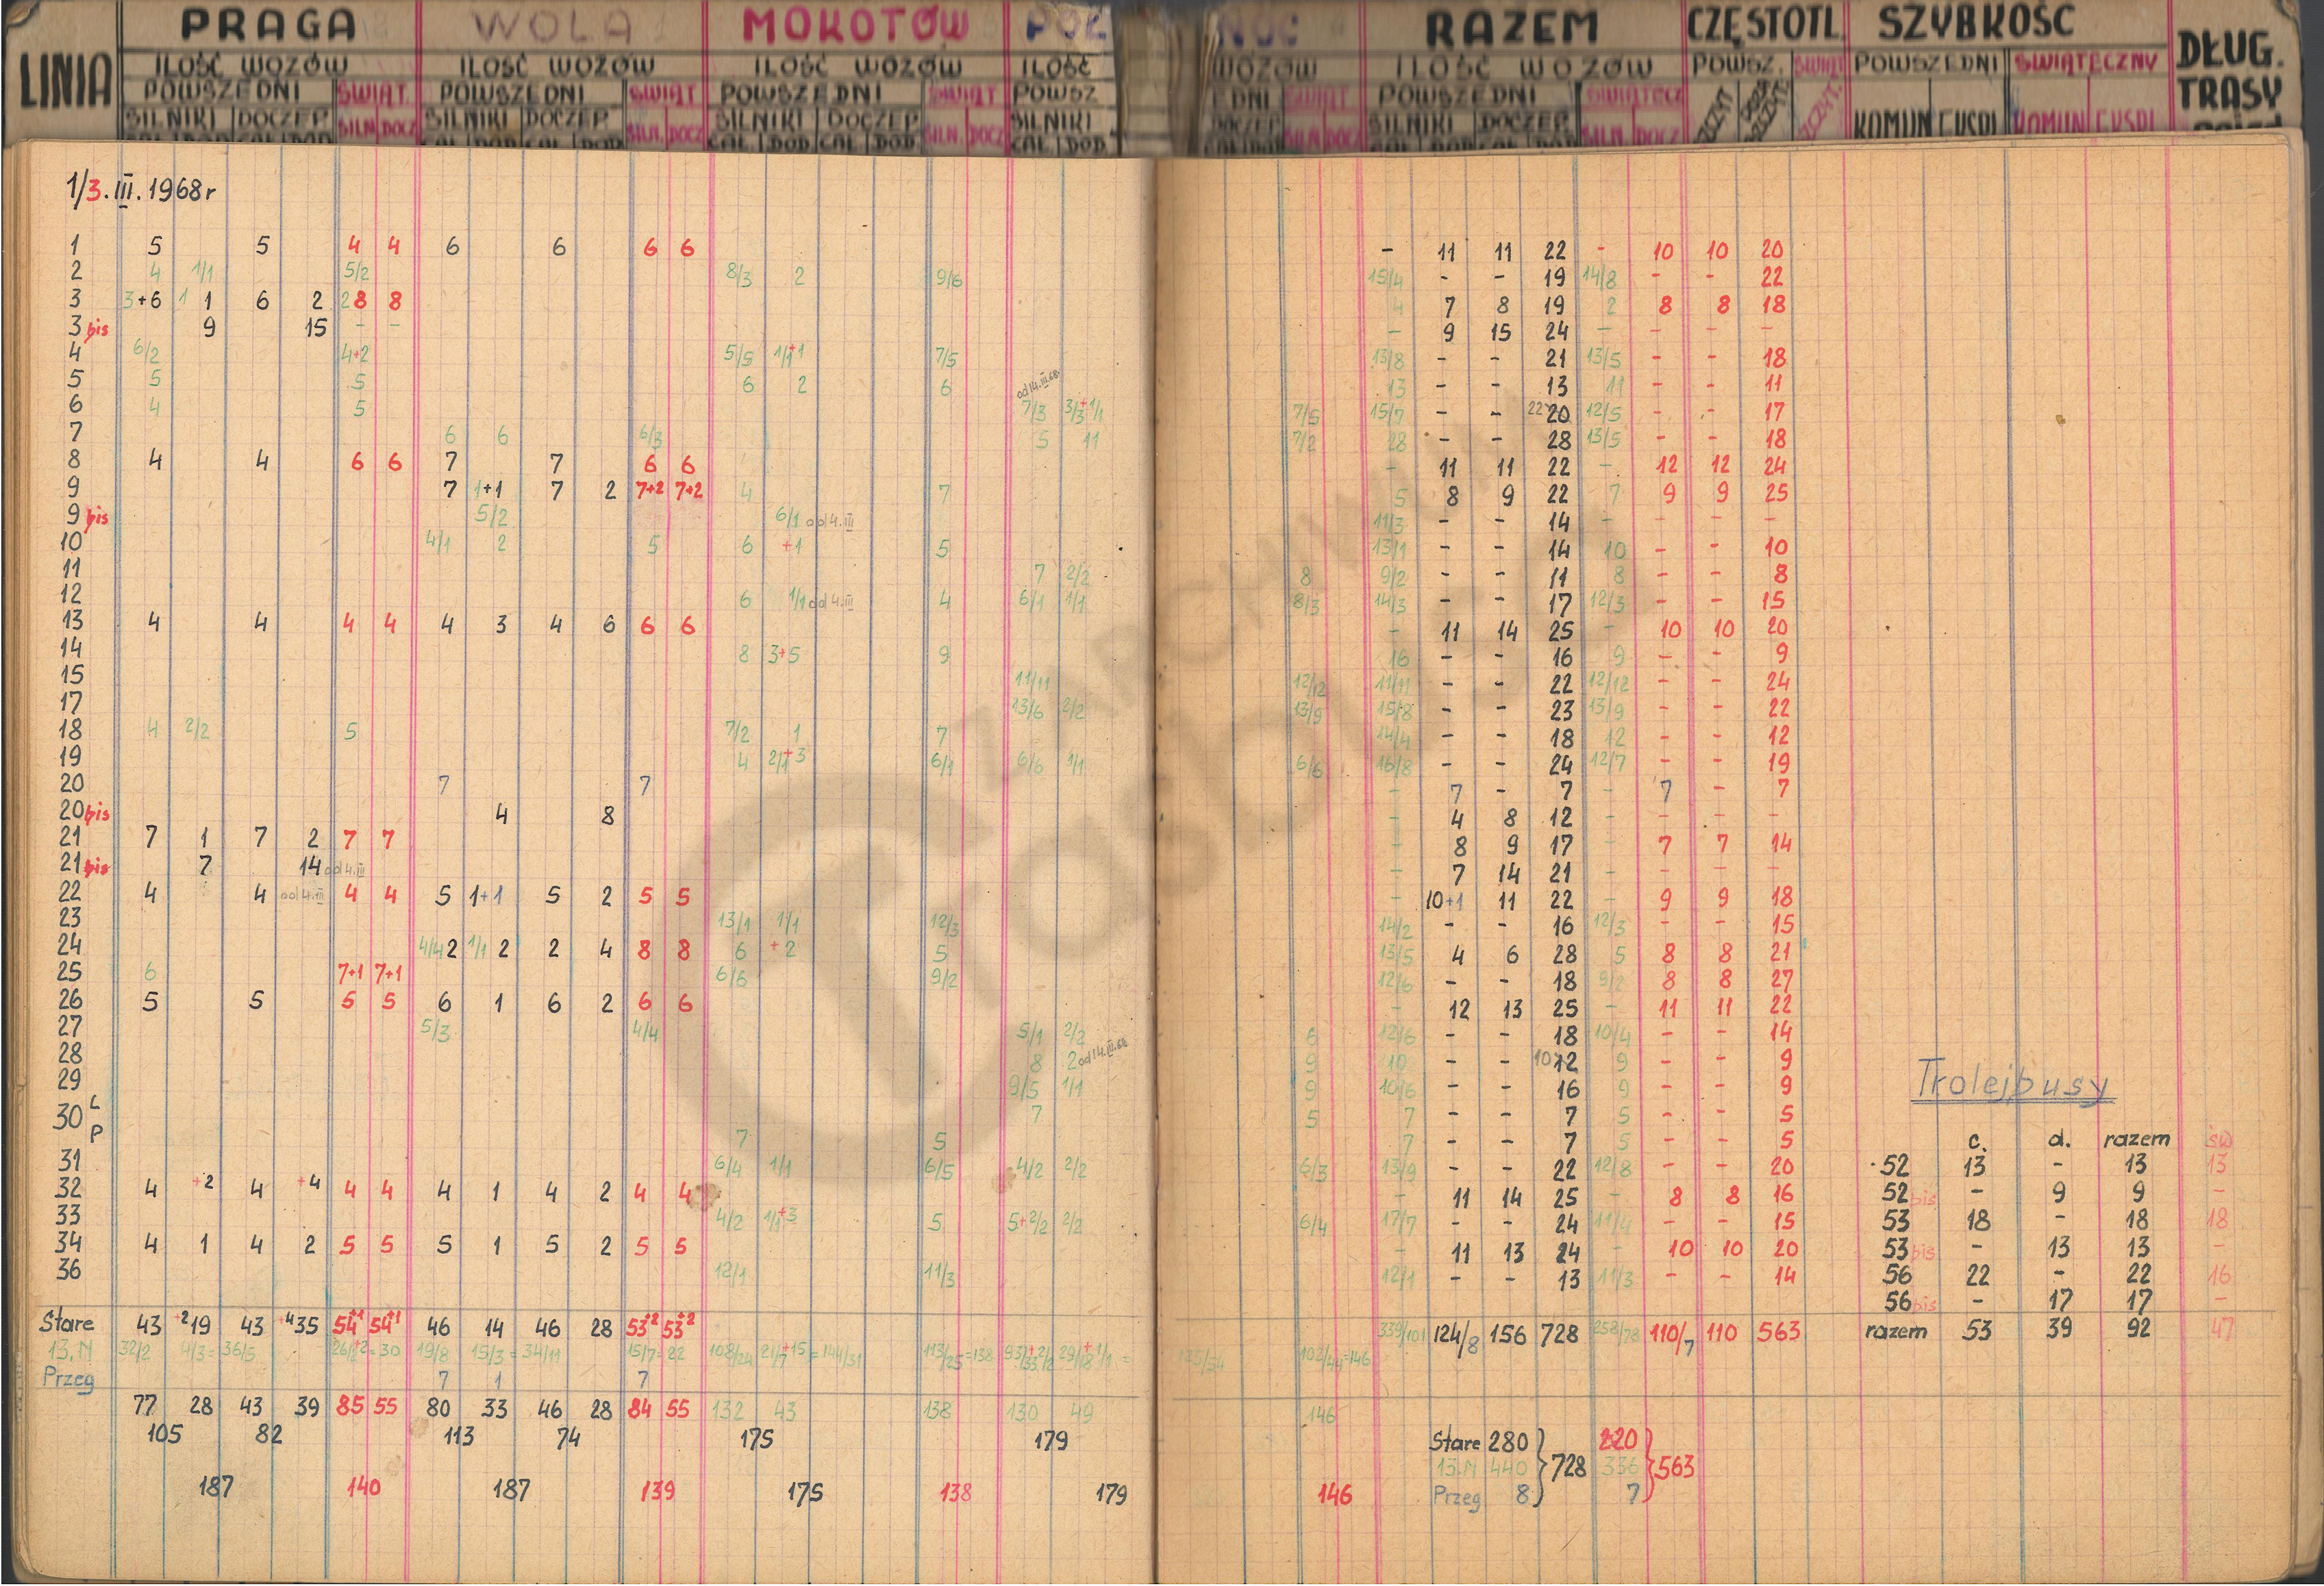 LINIA PRAGA WOLA MOKOTÓW PÓŁNOC RAZEM CZĘSTOTL. SZYBKOŚĆ DŁUG. TRASY
ILOŚĆ WOZÓW ILOŚĆ WOZÓW ILOŚĆ WOZÓW ILOŚĆ WOZÓW ILOŚĆ WOZÓW POWSZ. ŚWIĄT POWSZEDNI ŚWIĄTECZNY
POWSZEDNI ŚWIĄT. POWSZEDNI ŚWIĄT POWSZEDNI ŚWIĄT POWSZ EDNI ŚWIĄT POWSZEDNI ŚWIĄTECZ
SILNIKI DOCZEP. SILN. DOCZ SILNIKI DOCZEP. SILN. DOCZ SILNIKI DOCZEP. SILN. DOCZ SILNIKI DOCZEP SILN. DOCZ SILNIKI DOCZEP. SILN. DOCZ KOMUN EKSPL KOMUN EKSPL
CAŁ DOD CAŁ DOD CAŁ DOD CAŁ DOD CAŁ DOD CAŁ DOD CAŁ DOD CAŁ DOD CAŁ DOD
1/3.III.1968r
1 5 5 4 4 6 6 6 6 - 11 11 22 - 10 10 20
2 4 1/1 5/2 8/3 2 9/6 15/4 - - 19 14/8 - - 22
3 3+6 1 1 6 2 2 8 8 4 7 8 19 2 8 8 18
3 bis 9 15 - - - 9 15 24 - - - -
4 6/2 4+2 5/5 1/1+1 7/5 13/8 - - 21 13/5 - - 18
5 5 5 6 2 6 od 14.III.68. 13 - - 13 11 - - 11
6 4 5 7/3 3/3+1/1 7/5 15/7 - - 22 20 12/5 - - 17
7 6 6 6/3 5 11 7/2 28 - - 28 13/5 - - 18
8 4 4 6 6 7 7 6 6 - 11 11 22 - 12 12 24
9 7 1+1 7 2 7+2 7+2 4 7 5 8 9 22 7 9 9 25
9 bis 5/2 6/1 od 4.III 11/3 - - 14 - - - -
10 4/1 2 5 6 +1 5 13/1 - - 14 10 - - 10
11 7 2/2 8 9/2 - - 11 8 - - 8
12 6 1/1 od 4.III 4 6/1 1/1 8/3 14/3 - - 17 12/3 - - 15
13 4 4 4 4 4 3 4 6 6 6 - 11 14 25 - 10 10 20
14 8 3+5 9 16 - - 16 9 - - 9
15 11/11 12/12 11/11 - - 22 12/12 - - 24
17 13/6 2/2 13/9 15/8 - - 23 13/9 - - 22
18 4 2/2 5 7/2 1 7 14/4 - - 18 12 - - 12
19 4 2/1+3 6/1 6/6 1/1 6/6 16/8 - - 24 12/7 - - 19
20 7 7 - 7 - 7 - 7 - 7
20 bis 4 8 - 4 8 12 - - - -
21 7 1 7 2 7 7 - 8 9 17 - 7 7 14
21 bis 7 14 od 4.III - 7 14 21 - - - -
22 4 4 od 4.III 4 4 5 1+1 5 2 5 5 - 10+1 11 22 - 9 9 18
23 13/1 1/1 12/3 14/2 - - 16 12/3 - - 15
24 4/4 2 1/1 2 2 4 8 8 6 +2 5 13/5 4 6 28 5 8 8 21
25 6 7+1 7+1 6/6 9/2 12/6 - - 18 9/2 8 8 27
26 5 5 5 5 6 1 6 2 6 6 - 12 13 25 - 11 11 22
27 5/3 4/4 5/1 2/2 6 12/6 - - 18 10/4 - - 14
28 8 2 od 14.III.68 9 10 - - 10 12 9 - - 9
29 9/5 1/1 9 10/6 - - 16 9 - - 9
30 L 7 5 7 - - 7 5 - - 5
P 7 5 7 - - 7 5 - - 5
31 6/4 1/1 6/5 4/2 2/2 6/3 13/9 - - 22 12/8 - - 20
32 4 +2 4 +4 4 4 4 1 4 2 4 4 - 11 14 25 - 8 8 16
33 4/2 1/1+3 5 5+2/2 2/2 6/4 17/7 - - 24 11/4 - - 15
34 4 1 4 2 5 5 5 1 5 2 5 5 - 11 13 24 - 10 10 20
36 12/1 11/3 12/1 - - 13 11/3 - - 14
Stare 43 +2 19 43 +4 35 54+1 54+1 46 14 46 28 53+2 53+2 339/101 124/8 156 728 258/78 110/7 110 563
13.N 32/2 4/3= 36/5 26/2+2=30 19/8 15/3= 34/11 15/7=22 108/24 21/7+15 =144/31 113/25=138 102/44=146
Przeg 7 1 7
77 28 43 39 85 55 80 33 46 28 84 55 132 43 138 130 49 146
105 82 113 74 175 179
187 140 187 139 175 138 179 146
Stare 280 220
13.N 440 728 336 563
Przeg 8 7
Trolejbusy
c. d. razem św
52 13 - 13 13
52 bis - 9 9 -
53 18 - 18 18
53 bis - 13 13 -
56 22 - 22 16
56 bis - 17 17 -
razem 53 39 92 47